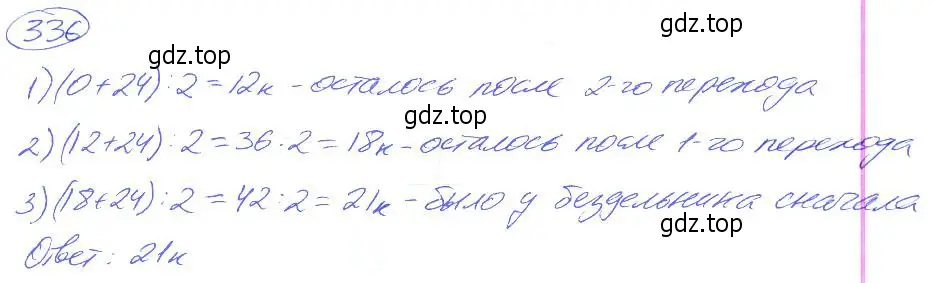 336
gdz.top
1) (0+24):2=12к - осталось после 2-го перехода
gdz.top
2) (12+24):2=36·2=18к - осталось после 1-го перехода
3) (18+24):2=42:2=21к - было у бездельника сначала
gdz.top
Ответ: 21к